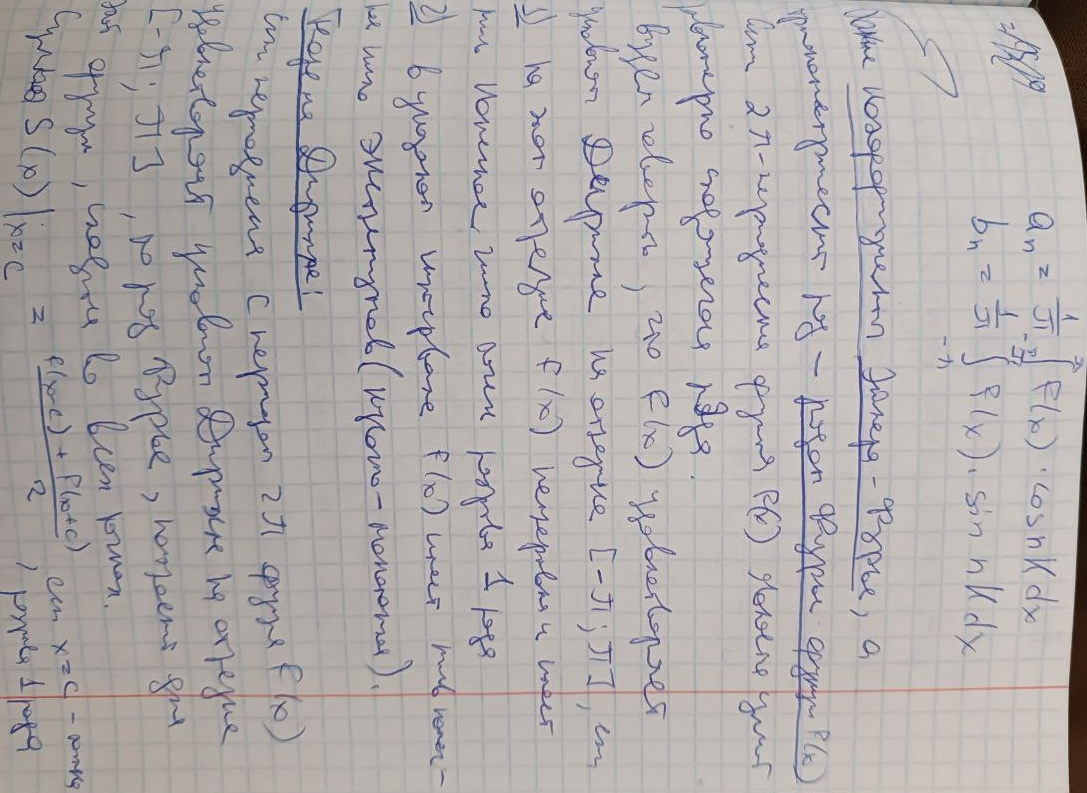 aₙ = 1/π ∫ f(x) · cos nx dx
bₙ = 1/π ∫ f(x) · sin nx dx
-π
коэффициенты Эйлера - Фурье, а
тригонометрический ряд - рядом Фурье функции f(x)
2π - периодическая функция f(x)
равномерно сходящегося ряда.
Будем говорить, что f(x) удовлетворяет
условиям Дирихле на отрезке [-π; π], если
1) на этом отрезке f(x) непрерывна и имеет
лишь конечное число точек разрыва 1 рода
2) в указанном интервале f(x) имеет лишь конеч-
ное число экстремумов (кусочно-монотонна).
Теорема Дирихле!
Если периодическая с периодом 2π функция f(x)
удовлетворяет условиям Дирихле на отрезке
[-π; π], то ряд Фурье, построенный для
этой функции, сходится во всех точках.
Сумма S(x)|x=c = f(x-c) + f(x+c) / 2, если x=c - точка
разрыва 1 рода